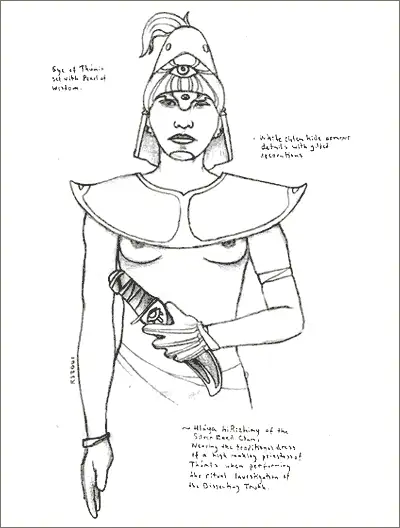 Eye of Thúmis
set with Pearl of
Wisdom.
- White chlen hide armour
details with gilded
decorations
~ Hláya hiRizhimy of the
Reed Clan,
Wearing the traditional dress
of a high ranking priestess of
Thúmis when performing
the ritual Investigation of
the Dissenting Truth.